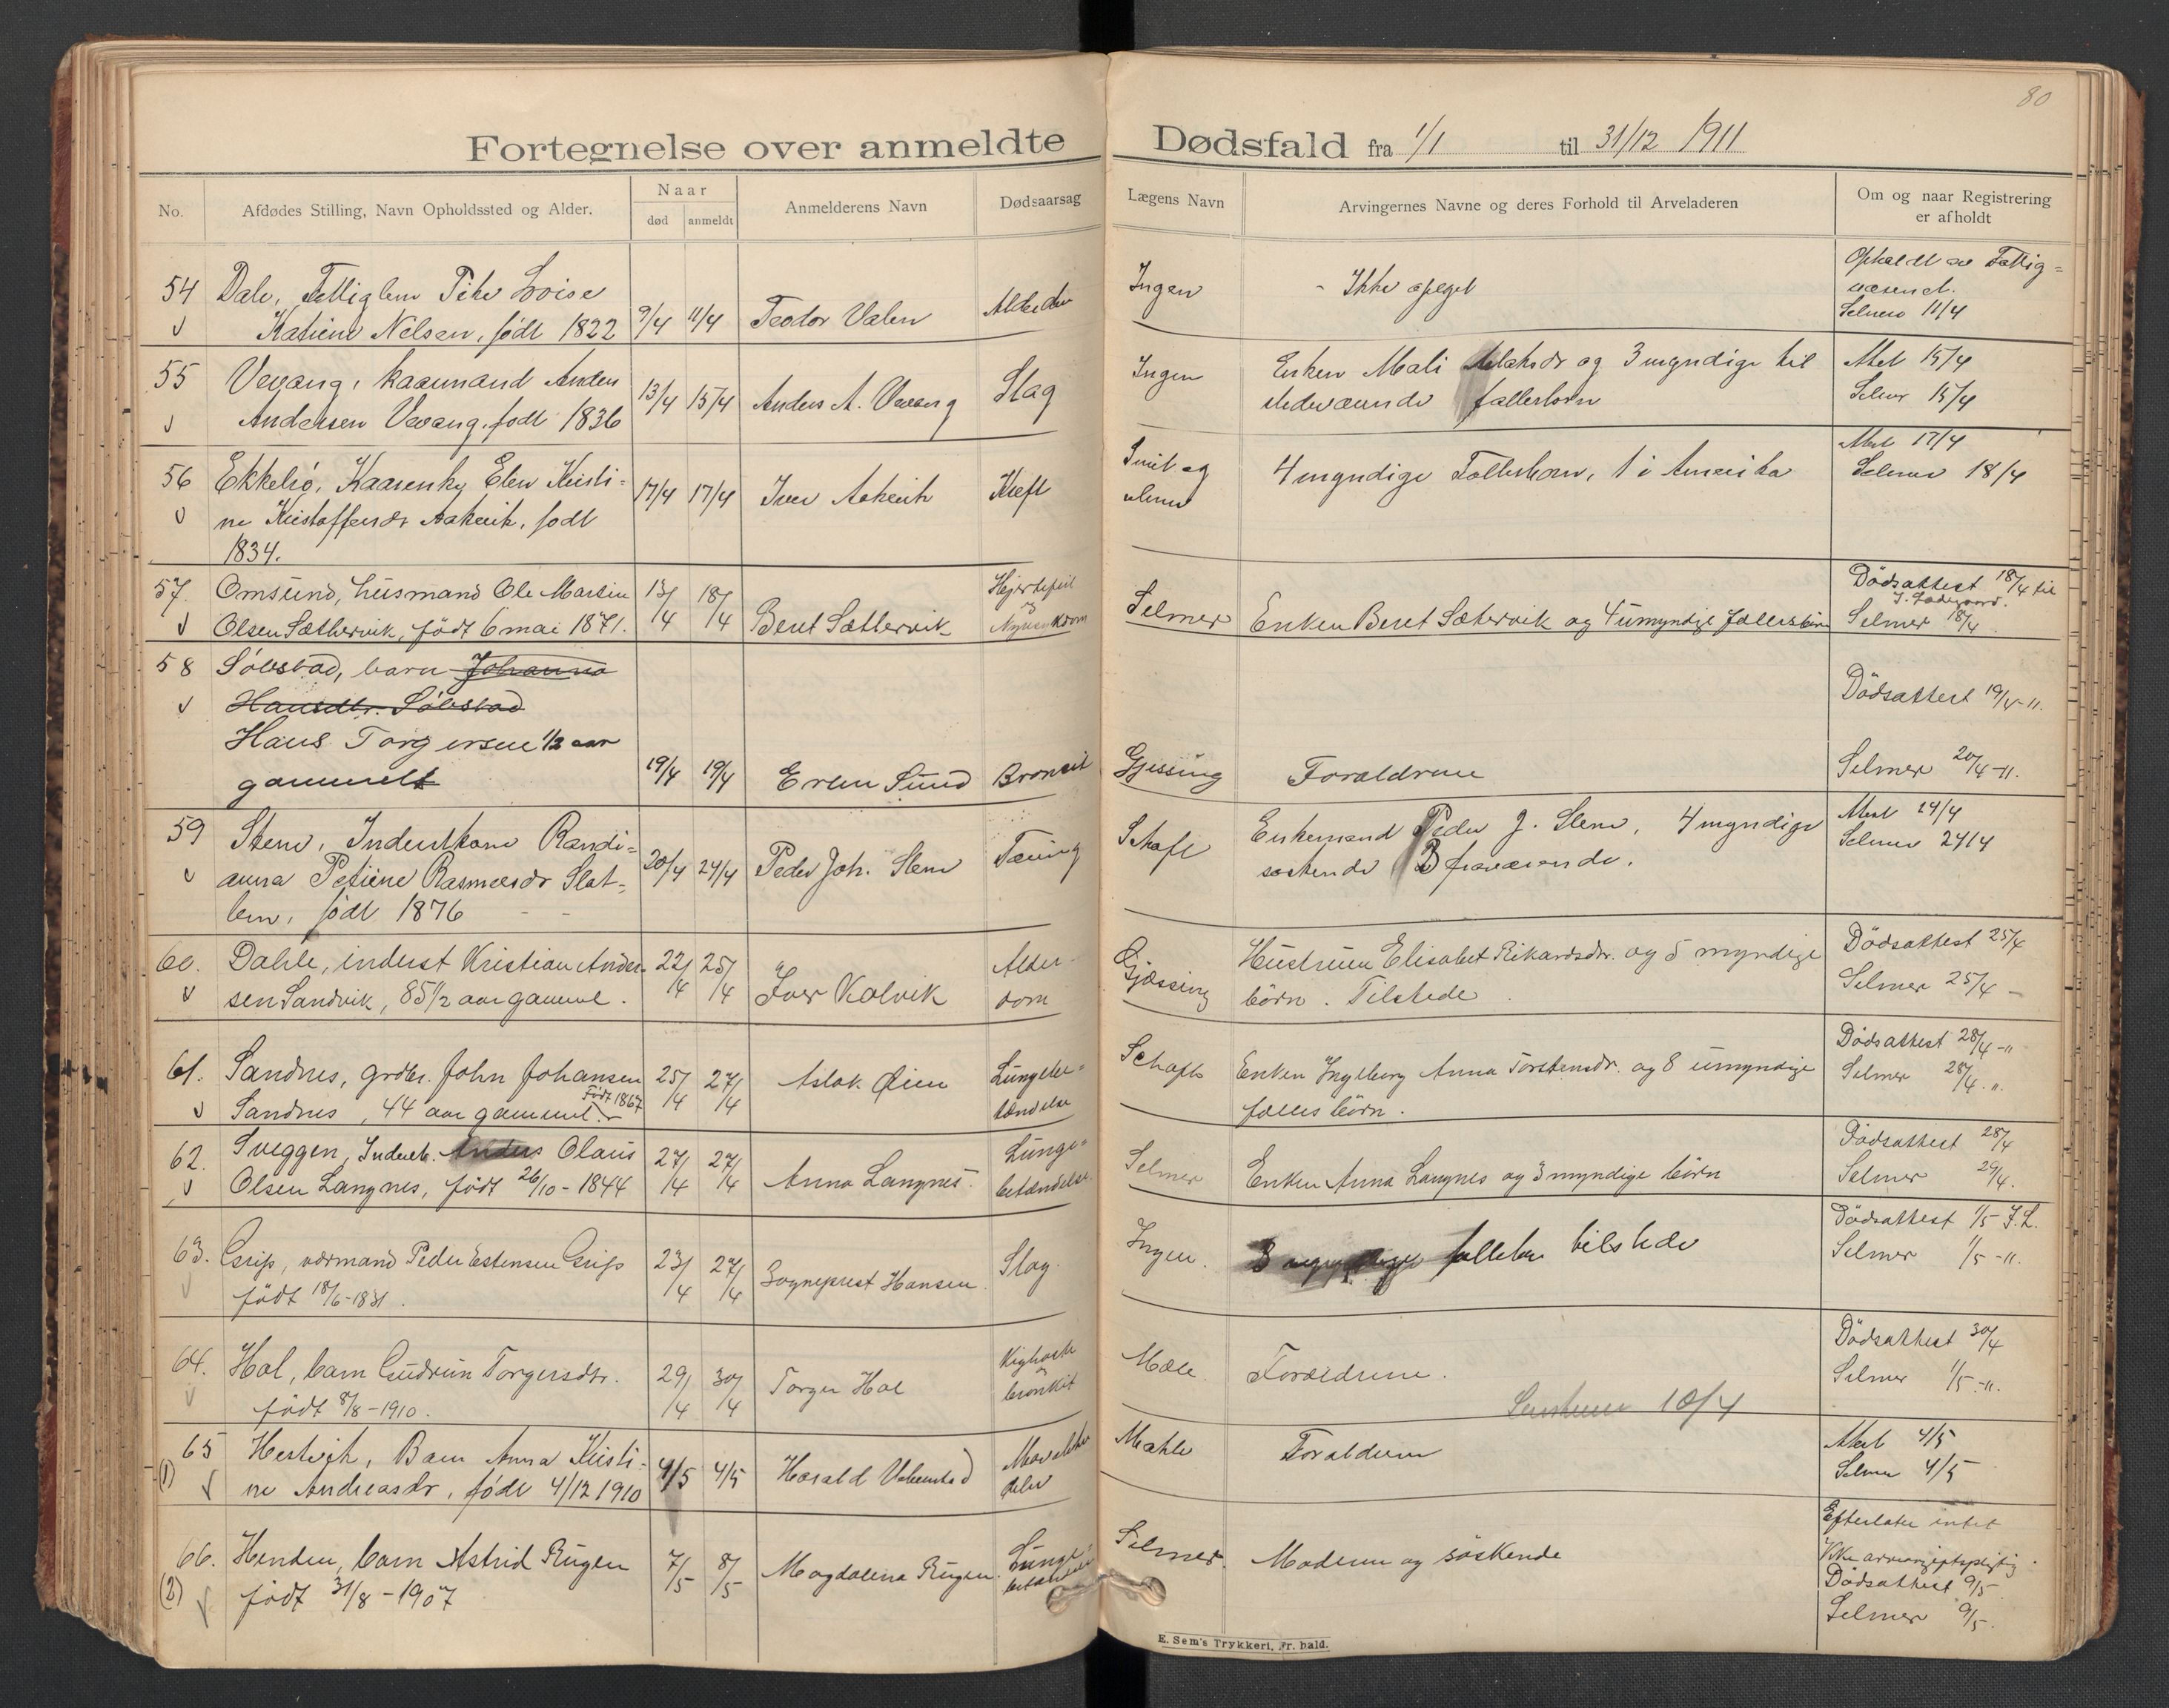 80
Fortegnelse over anmeldte Dødsfald fra 1/1 til 31/12 1911
No.
Afdødes Stilling, Navn Opholdssted og Alder.
Naar
død
anmeldt
Anmelderens Navn
Dødsaarsag
Lægens Navn
Arvingernes Navne og deres Forhold til Arveladeren
Om og naar Registrering
er afholdt
54 Dale, Pike Lovise
Nelsen, født 1822 9/4 11/4 Teodor Valen
Ingen
Ikke opgget
Selmer 11/4
55 Vevang, kaarmand Anders
Andersen Vevang, født 1836 13/4 15/4 Anders A. Vevang Slag
Ingen
Enken Mali og 3 myndige til
stedeværende fællesbørn
Atest 15/4
Selmer 15/4
56 Ekkelsö, Elen Kristi-
ne, født
1834.
17/4 17/4 Iver Kreft
4 myndige Fællesbørn, 1 i Amerika
Atest 17/4
Selmer 18/4
57. Omsund, husmand Ole Martin 13/4 18/4
Olsen Sæthervik, født 6 mai 1871. Beret Sæthervik
Hjertefeil
og
Nyresykdom
Selmer Enken Beret Sæthervik og 4 umyndige fællesbörn
Dödsattest 18/4 til
Selmer 18/4
58 Sölvstad, barn Johanna
Hansdtr. Sölvstad
Hans Torgersen 1/2 aar
gammelt
19/4 19/4 Erlen Sund Bronkit
Gjessing Forældrene
Dödsattest 19/4-11.
Selmer 20/4-11.
59 Stene, Inderstkone Randi-
anna Petrine Rasmusdr Slat-
lem, født 1876
20/4 24/4 Peder Joh. Stene Tæring
Schaft
Enkemand Peder J. Stene, 4 myndige
søskende 3 fraværende.
Atest 24/4
Selmer 24/4
60. Dahle, inderst Kristian Ander- 22/4 25/4
sen Sandvik, 85 1/2 aar gammel. Iver Kalvik
Alder-
dom
Gjæssing
Hustruen Elisabet Rikardsdtr. og 5 myndige
börn. Tilstede
Dödsattest 25/4
Selmer 25/4
61. Sandnes, grdbr. John Johansen 25/4 27/4 Aslak Øien
Født 1867
Sandnes, 44 aar gammel.
Lungebe-
tændelse
Schaft
Enken Ingeborg Anna Torstensdr. og 8 umyndige
fælles börn.
Dödsattest 28/4-11
Selmer 28/4.11.
62. Sveggen, Inderst. Anders Olaus 27/4 27/4 Anna Langnes.
Olsen Langnes, født 26/10-1844
Lunge-
betændelse.
Selmer
Enken Anna Langnes og 3 myndige börn
Dödsattest 28/4
Selmer 29/4.
63. Grip, vormand Peder Estensen Grip 23/4 27/4 Sogneprest Hansen. Slag.
født 18/6-1831.
Ingen.
3 tilstede
Dödsattest 1/5 J.L.
Selmer 1/5-11.
64. Hol, barn Gudrun Torgersdtr. 29/4 30/4 Torger Hol
født 8/8-1910.
Kighoste
og
bronkit
Mæle. Forældrene.
Dödsattest 30/4
Selmer 1/5.-11.
10/4
65 Hestvik, Barn Anna Kristi-
(1) ne Andreasdr, født 4/12 1910
4/5 4/5 Harald
Mæhle Forældrene
Atest 4/5
Selmer 4/5
66. Henden, barn Astrid Rugen 7/5 8/5 Magdalena Rugen.
(2) født 31/8-1907
Lunge-
betændelse
Selmer. Moderen og söskende
Efterlater intet
Ikke
Dödsattest 9/5
Selmer 9/5.
E. Sem's Trykkeri, Fr. hald.